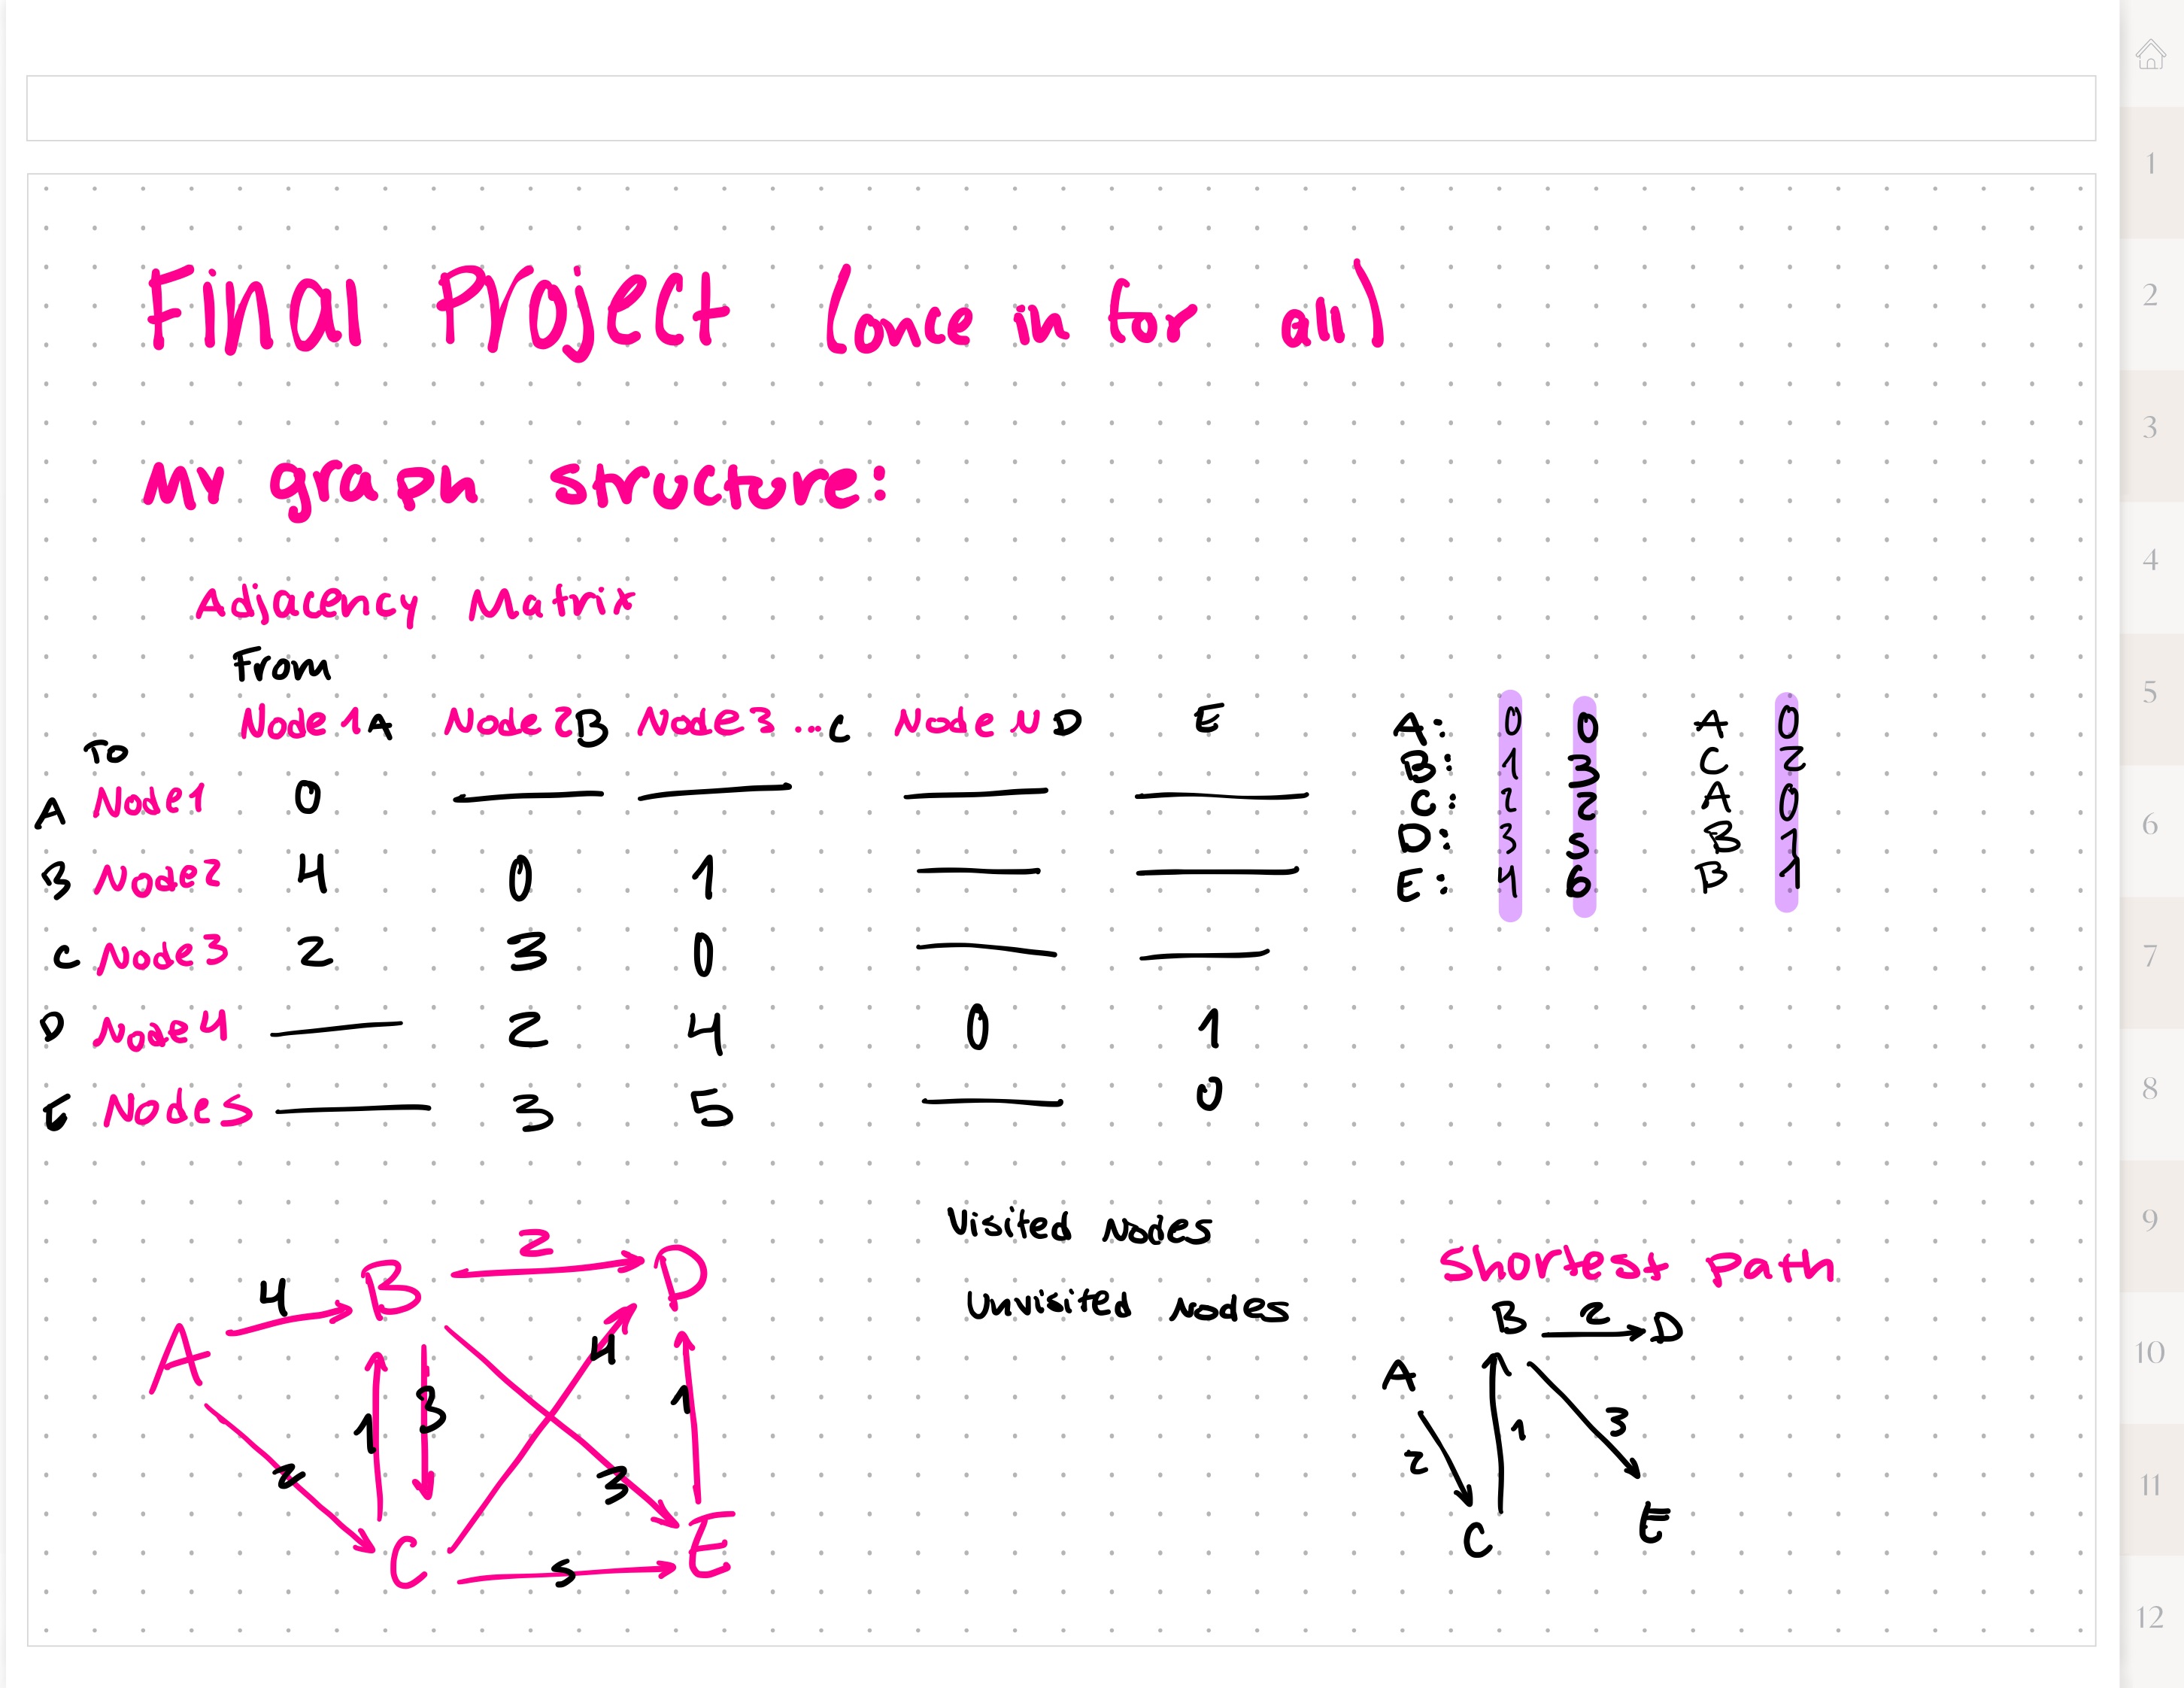 Final Project (once in for all)
My graph structure:
Adjacency Matrix
From
To Node1 A Node2 B Node3 ... C Node N D E
A Node1 0 — — — —
B Node2 4 0 1 — —
C Node3 2 3 0 — —
D Node4 — 2 4 0 1
E Node5 — 3 5 — 0
A: 0 0 A 0
B: 1 3 C 2
C: 2 2 A 0
D: 3 5 B 1
E: 1 6 B 1
A 4 B 2 D
2 1 3 4 3 1
C 5 E
Visited Nodes
Unvisited Nodes
Shortest Path
B 2 D
A
2 1 3
C E
1
2
3
4
5
6
7
8
9
10
11
12